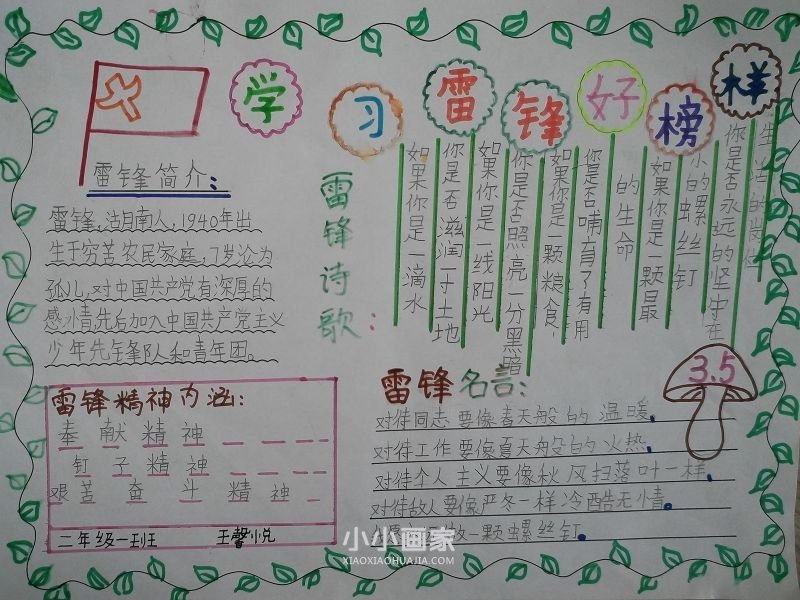 学习雷锋好榜样
雷锋简介:
雷锋,湖南人,1940年出
生于穷苦农民家庭,7岁沦为
孤儿,对中国共产党有深厚的
感情,先后加入中国共产党主义
少年先锋队和青年团。
雷锋诗歌:
如果你是一滴水
你是否滋润一寸土地
如果你是一线阳光
你是否照亮一分黑暗
如果你是一颗粮食,
你是否哺育了有用
的生命
如果你是一颗最
小的螺丝钉
你是否永远的坚守在
生活的岗位
雷锋精神内涵:
奉献精神
钉子精神
艰苦奋斗精神
二年级一班 王馨悦
雷锋名言:
3.5
对待同志要像春天般的温暖.
对待工作要像夏天般的火热.
对待个人主义要像秋风扫落叶一样.
对待敌人要像严冬一样冷酷无情.
一颗螺丝钉.
小小画家
XIAOXIAOHUAJIA.COM